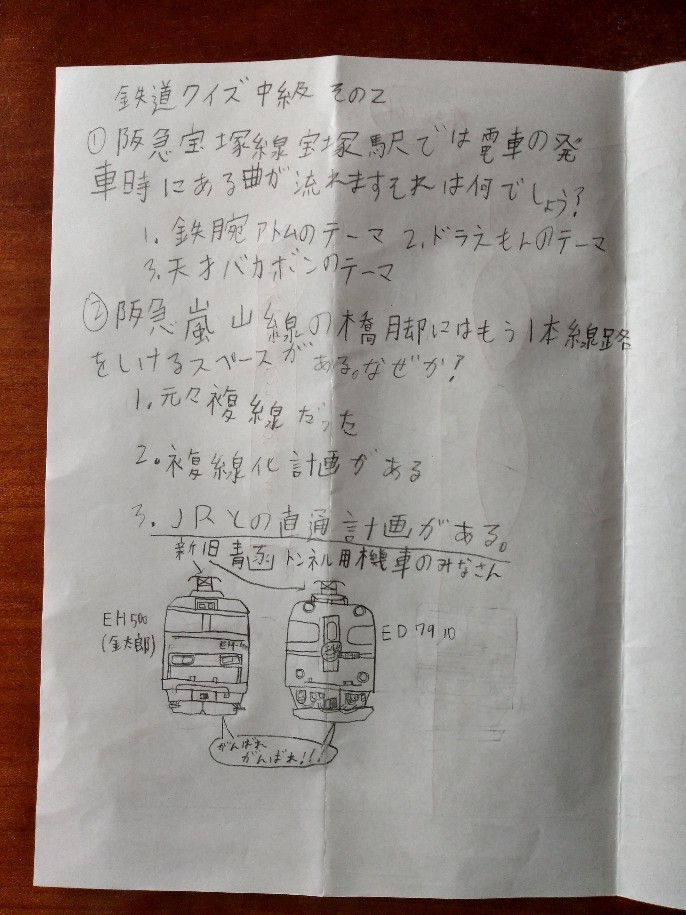 鉄道クイズ中級 その2
①阪急宝塚線宝塚駅では電車の発
車時にある曲が流れますそれは何でしょう?
1.鉄腕アトムのテーマ 2.ドラえもんのテーマ
3.天才バカボンのテーマ
②阪急嵐山線の橋脚にはもう1本線路
をしけるスペースがある。なぜか?
1.元々複線だった
2.複線化計画がある
3.JRとの直通計画がある。
新旧青函トンネル用機車のみなさん
EH500
(金太郎)
ED79 10
がんばれ
がんばれ!!!